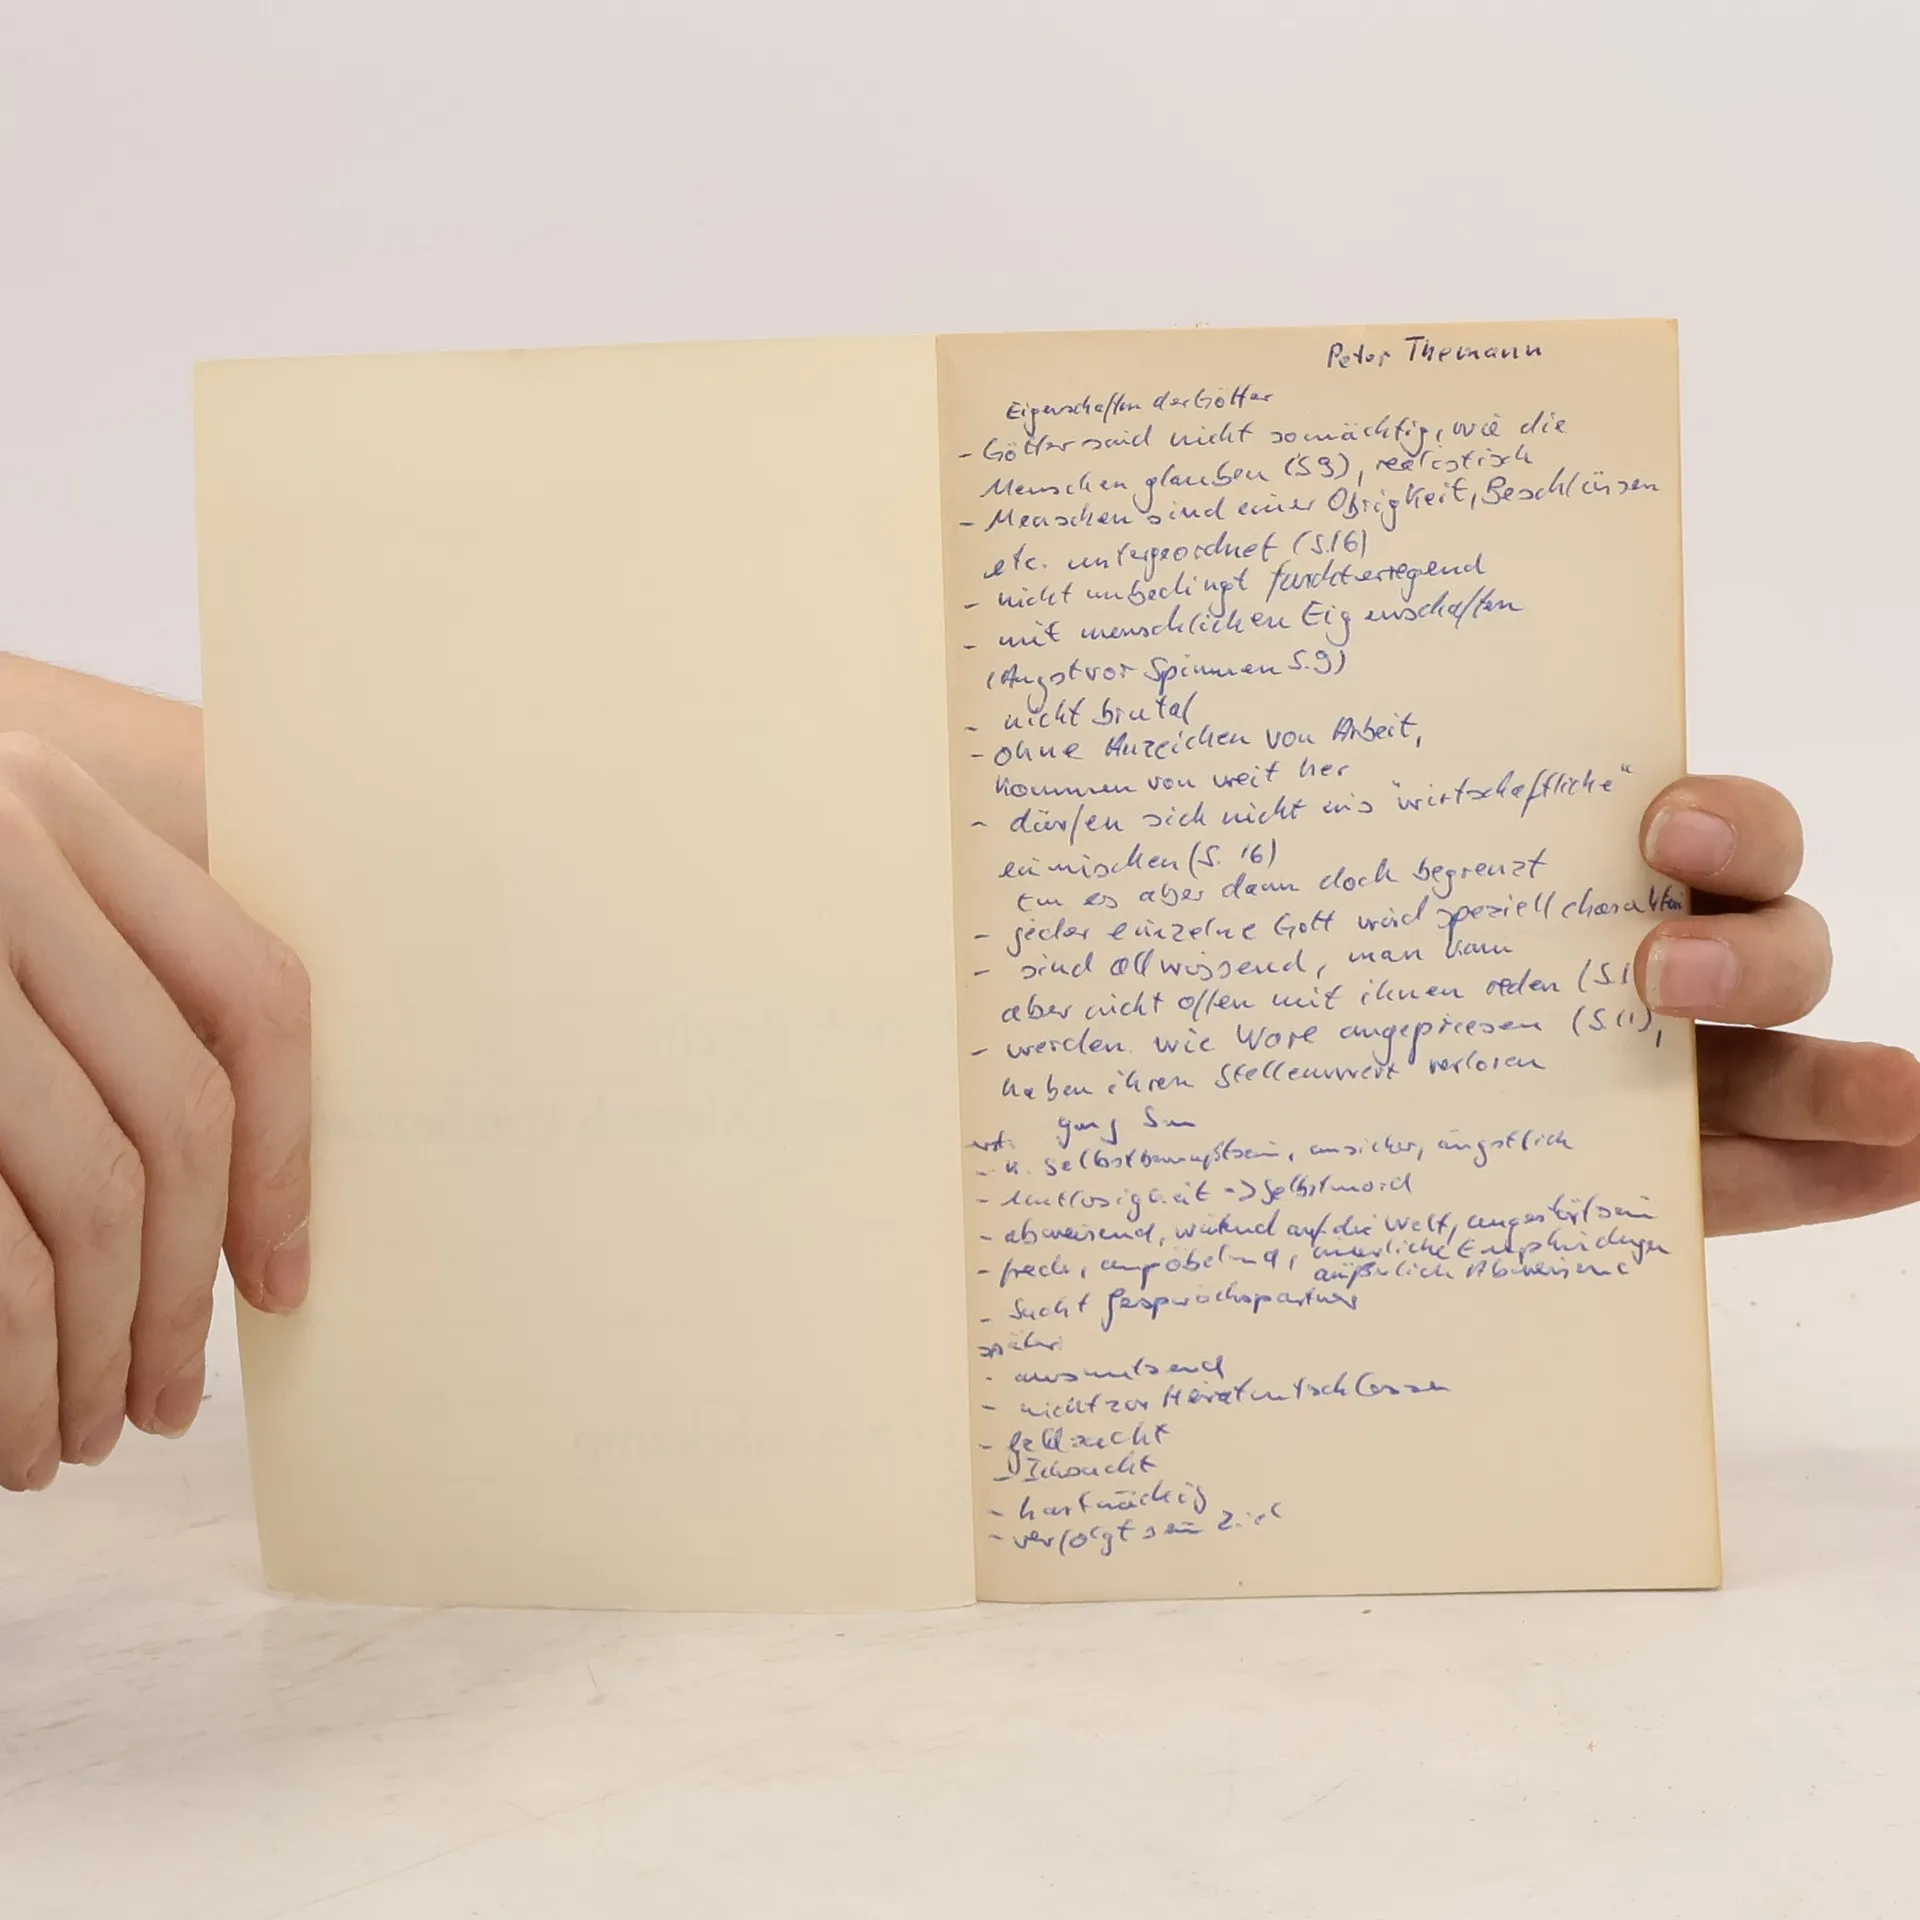 Peter Themann
Eigenschaften der Götter
- Götter sind nicht so mächtig, wie die
Menschen glauben (S 9), realistisch
- Menschen sind einer Obrigkeit, Beschlüssen
etc. untergeordnet (S.16)
- nicht unbedingt furchterregend
- mit menschlichen Eigenschaften
(Angst vor Spinnen S.9)
- nicht brutal
- ohne Anzeichen von Arbeit,
kommen von weit her
- dürfen sich nicht ins "wirtschaftliche"
einmischen (S. 16)
tun es aber dann doch begrenzt
- jeder einzelne Gott wird speziell
- sind allwissend, man kann
aber nicht offen mit ihnen reden (S.1
- werden wie Ware angepriesen (S.11),
haben ihren Stellenwert verloren
Yang Sun
erst:
- k. Selbstbewußtsein, unsicher, ängstlich
- Mutlosigkeit -> Selbstmord
- abweisend, wütend auf die Welt,
- frech, anpöbelnd, innerliche Empfindungen
äußerlich Abweisend
- Sucht Gesprächspartner
später
- ausnutzend
- nicht zur Heirat entschlossen
- Geldsucht
- Ichsucht
- hartnäckig
- verfolgt sein Ziel